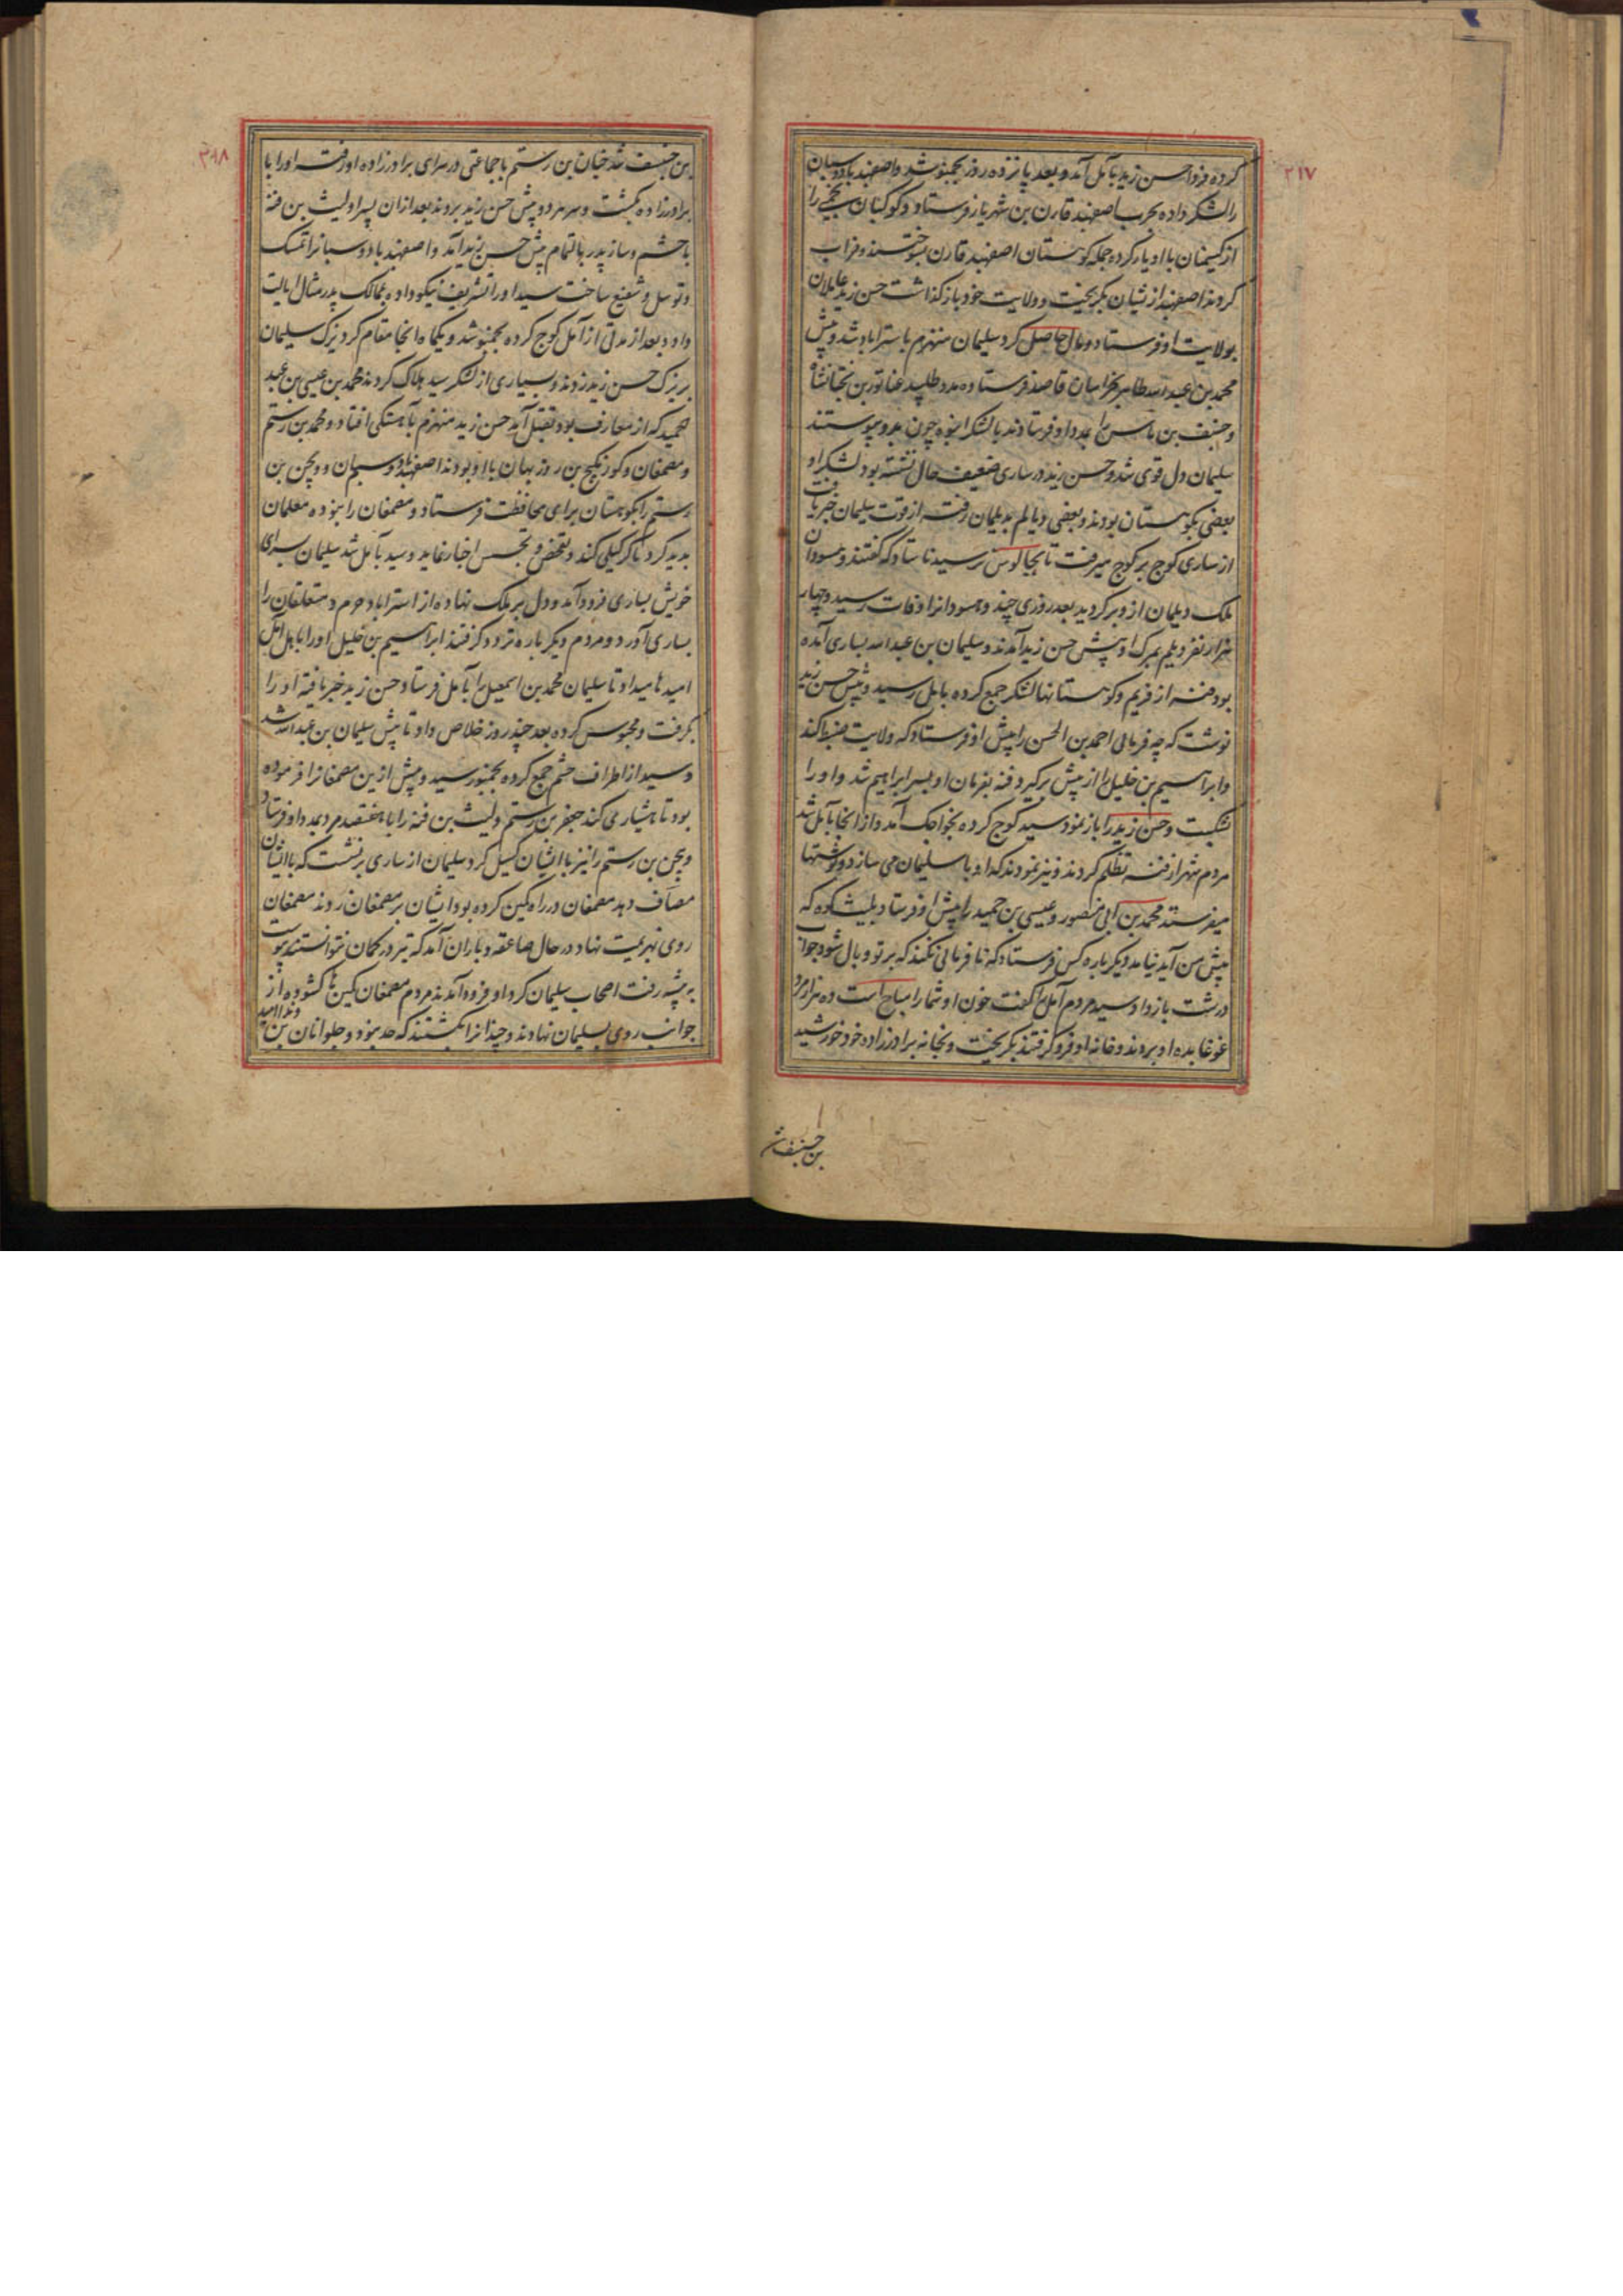 ۳۱۷
کرده فردا حسن زید بآمل آمد و بعد پانزده روز بچمنو شد و اصفهبد بادوسبان
را لشکر داده بحرب اصفهبد قارن بن شهریار فرستاد و کوکبان
از کسیمنان با او یار کرده جمله کوهستان اصفهبد قارن بسوختند و خراب
کردند اصفهبد از ایشان بگریخت و ولایت خود بازگذاشت حسن زید عاملان
بولایت او فرستاد و مال حاصل کرد سلیمان منهزم باستراباد شد و پیش
محمد بن عبدالله طاهر بخراسان قاصد فرستاده مدد طلبید بن
و جنف بن را بمدد او فرستادند با لشکر انبوه چون بدو پیوستند
سلیمان دل قوی شد و حسن زید در ساری ضعیف حال نشسته بود لشکر او
بعضی بکوهستان بودند و بعضی دیالم بدیلمان رفته از قوت سلیمان خبر یافت
از ساری کوچ بر کوچ میرفت تا بچالوس نرسید ناستاد که گفتند وهسودان
ملک دیلمان ازو برگردید بعد روزی چند وهسودان را وفات رسید و چهار
هزار نفر دیلم بمرگ او پیش حسن زید آمدند و سلیمان بن عبدالله بساری آمده
بود فنه از فریم و کوهستانها لشکر جمع کرده بآمل رسید و پیش حسن زید
نوشت که چه فرمائی احمد بن الحسن را پیش او فرستاد که ولایت ضبط کند
و ابراهیم بن خلیل را از پیش برگیرد فنه بفرمان او بسر ابراهیم شد و او را
بشکست و حسن زید را باز نمود سید کوچ کرده بخواجک آمد و از انجا بآمل شد
مردم شهر از فنه تظلم کردند و نیز نمودند که او با سلیمان می سازد و نوشتها
میفرستد محمد بن ابی منصور و عیسی بن حمید را پیش او فرستاد بلیشکوه که
پیش من آید نیامد دیگر باره کس فرستاد که نافرمانی نکند که بر تو وبال شود جواب
درشت باز داد سید مردم آمل را گفت خون او شما را مباح است ده هزار مرد
غوغا بده او بردند و خانه او فرو گرفتند بگریخت و بخانه برادرزاده خود خورشید
بن جنف شد
۳۱۸
بن جنف شد خیان بن رستم با جماعتی در سرای برادرزاده او رفته او را با
برادرزاده بکشت و سر هر دو پیش حسن زید بردند بعد ازان پسر او لیث بن فنه
با حشم و ساز پدر بالتمام پیش حسن زید آمد و اصفهبد بادوسبان را تمسک
و توسل و شفیع ساخت سید او را تشریف نیکو داده بممالک پدر مثال ایالت
داد و بعد از مدتی از آمل کوچ کرده بچمنو شد و یکماه انجا مقام کرد یزک سلیمان
بر یزک حسن زید زدند و بسیاری از لشکر سید هلاک کردند محمد بن عیسی بن عبد
الحمید که از معارف بود بقتل آمد حسن زید منهزم بآهستگی افتاد و محمد بن رستم
و مصمغان و کورنکیج بن روزبهان با او بودند اصفهبد بادوسبان و ویجن بن
رستم را بکوهستان برای محافظت فرستاد و مصمغان را بنوده معلمان
بدید کرد تا گرکیلی کند و بتفحص و تجسس اخبار نماید و سید بآمل شد سلیمان بسرای
خویش بساری فرود آمد و دل بر ملک نهاده از استراباد حرم و متعلقان را
بساری آورد و مردم دیگر باره تردد گرفتند ابراهیم بن خلیل او را باهل آمل
امیدها میداد تا سلیمان محمد بن اسمعیل را بآمل فرستاد حسن زید خبر یافته او را
بگرفت و محبوس کرده بعد چند روز خلاص داد تا پیش سلیمان بن عبدالله شد
و سید از اطراف حشم جمع کرده بچمنو رسید و پیش ازین مصمغان را فرموده
بود تا هشیاری کند جعفر بن رستم و لیث بن فنه را با هفتصد مرد بمدد او فرستاد
ویجن بن رستم را نیز با ایشان گسیل کرد سلیمان از ساری برنشست که با ایشان
مصاف دهد مصمغان در راه کمین کرده بود ایشان بر مصمغان زدند مصمغان
روی بهزیمت نهاد در حال صاعقه و باران آمد که تیر در کمان نتوانستند پیوست
به بیشه رفت اصحاب سلیمان گرد او فرود آمدند مردم مصمغان کمین ها گشوده از
جوانب روی بسلیمان نهادند و چندانرا بکشتند که حد نبود و جلوانان بن